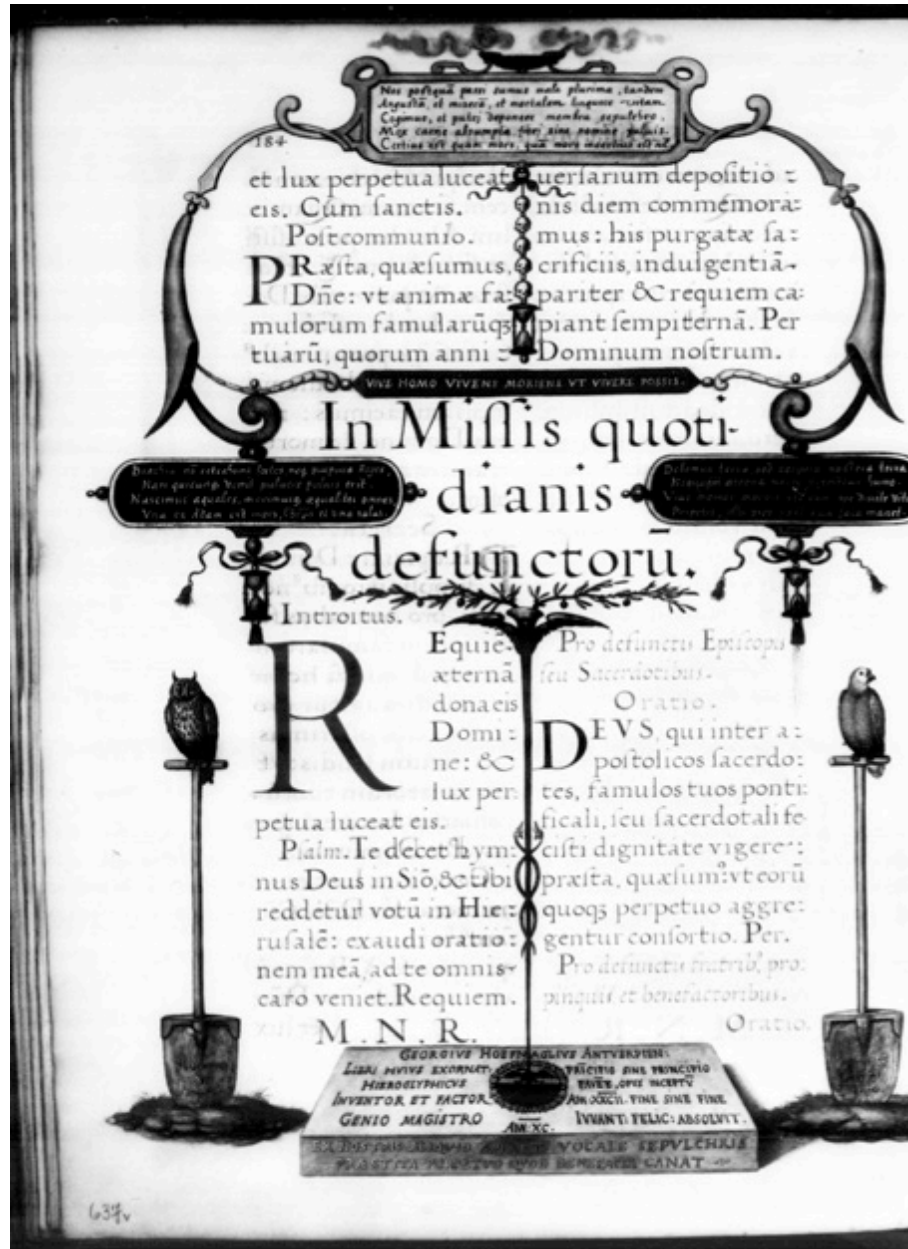 Nos postquã passi sumus mala plurima, tandem
Angustã, et miserã, et mortalem linquere
Cogimur, et putri deponere membra sepulchro.
184
et lux perpetua luceat
eis. Cum sanctis.
Postcommunio.
PRæsta, quæsumus,
Dñe: vt animæ fa:
mulorum famularũqꝫ
tuarũ, quorum anni :
uersarium depositiõ :
nis diem commemora:
mus: his purgatæ sa:
crificiis, indulgentiã
pariter & requiem ca
piant sempiternã. Per
Dominum nostrum.
VIVE HOMO VIVENS MORIENS VT VIVERE POSSIS.
In Missis quoti-
dianis
defunctorũ.
Nascimur aequales, morimurq aequales omnes
Introitus.
REquiẽ
æternã
dona eis
Domi:
ne: &
lux per
petua luceat eis.
Psalm. Te decet hym:
nus Deus in Siõ, & tibi
reddetur votũ in Hie:
rusalẽ: exaudi oratio:
nem meã, ad te omnis
caro veniet. Requiem.
M. N. R.
Pro defunctis Episcopis
seu Sacerdotibus.
Oratio.
DEVS, qui inter a:
postolicos sacerdo:
tes, famulos tuos ponti:
ficali, seu sacerdotali fe
cisti dignitate vigere:
præsta, quæsumꝰ vt eorũ
quoqꝫ perpetuo aggre:
gentur consortio. Per.
Pro defunctis fratribꝰ, pro:
pinquis et benefactoribus.
Oratio.
GEORGIVS HOEFNAGLIVS ANTVERPIEN:
LIBRI HVIVS EXORNAT:
HIEROGLYPHICVS
INVENTOR ET FACTOR
GENIO MAGISTRO
PRĨCIPIO SINE PRINCIPIO
FAVẼTE, OPVS INCEPTṼ
AÑ. XXCII. FINE SINE FINE
IVVANTE FELIC: ABSOLVIT.
AÑ. XC.
VOCALE SEPVLCHRIS
CANAT
637v